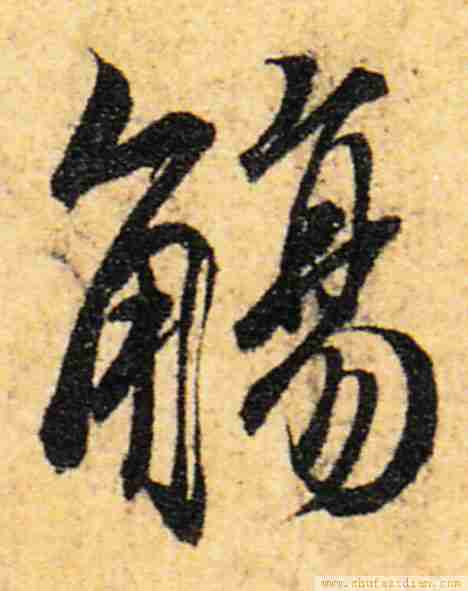 觴
www.shufazidian.com